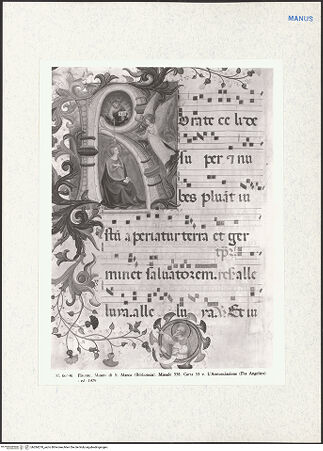 MANUS
orate celi de
su per et nu
bes pluāt iu
stū aperiatur terra et ger
t.p.
minet saluatorem. resp. alle
luia. alle lu ia. V. Et iu
Firenze. Museo di S. Marco (Biblioteca). Missale 558. Carta 33 v. L'Annunciazione (Fra Angelico)